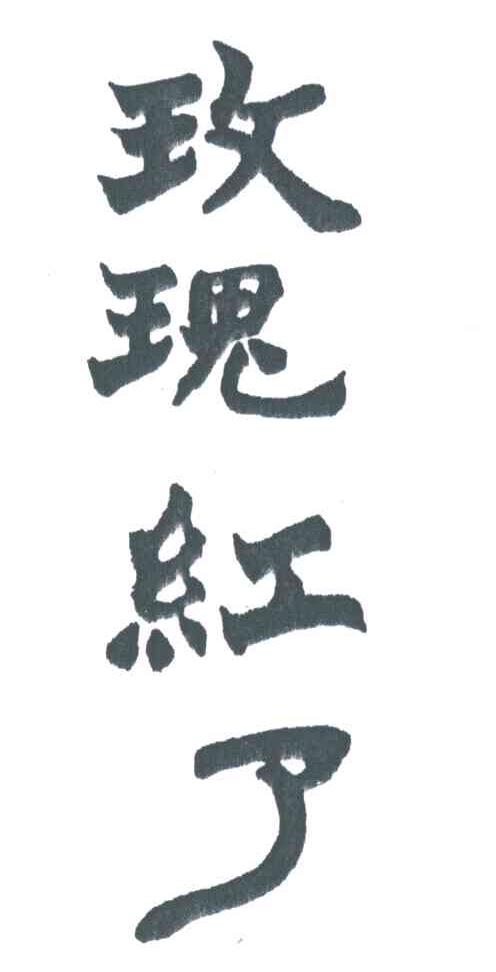 玫瑰紅了